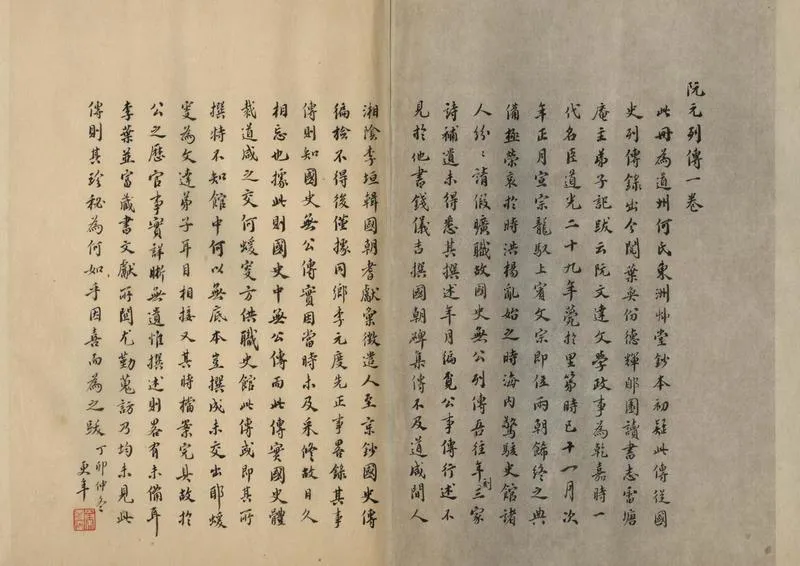 阮元列傳一卷
此冊為道州何氏東洲艸堂鈔本初疑此傳從國
史列傳錄出今閱葉奐份德輝郋園讀書志雷塘
庵主弟子記跋云阮文達文學政事為乾嘉時一
代名臣道光二十九年薨於里第時已十一月次
年正月宣宗龍馭上賓文宗即位兩朝飾終之典
備極榮哀於時洪楊亂始之時海內驚駭史館諸
人紛〻請假曠職故國史無公列傳吾往年刻三家
詩補遺未得悉其撰述年月編覓公事傳行述不
見於他書錢儀吉撰國朝碑集傳不及道咸間人
湘陰李垣輯國朝耆獻彙徵遣人至京鈔國史傳
編檢不得後僅據同鄉李元度先正事畧錄其事
傳則知國史無公傳實因當時未及采修故日久
相忘也據此則國史中無公傳而此傳實國史體
裁道咸之交何媛叟方供職史館此傳或即其所
撰特不知館中何以無底本豈撰成未交出耶媛
叟為文達弟子耳目相接又其時檔案完具故於
公之歷官事實詳晰無遺惟撰述則畧有未備耳
李葉並富藏書文獻所關尤勤蒐訪乃均未見此
傳則其珍秘為何如乎因喜而為之跋 丁卯仲冬
更年